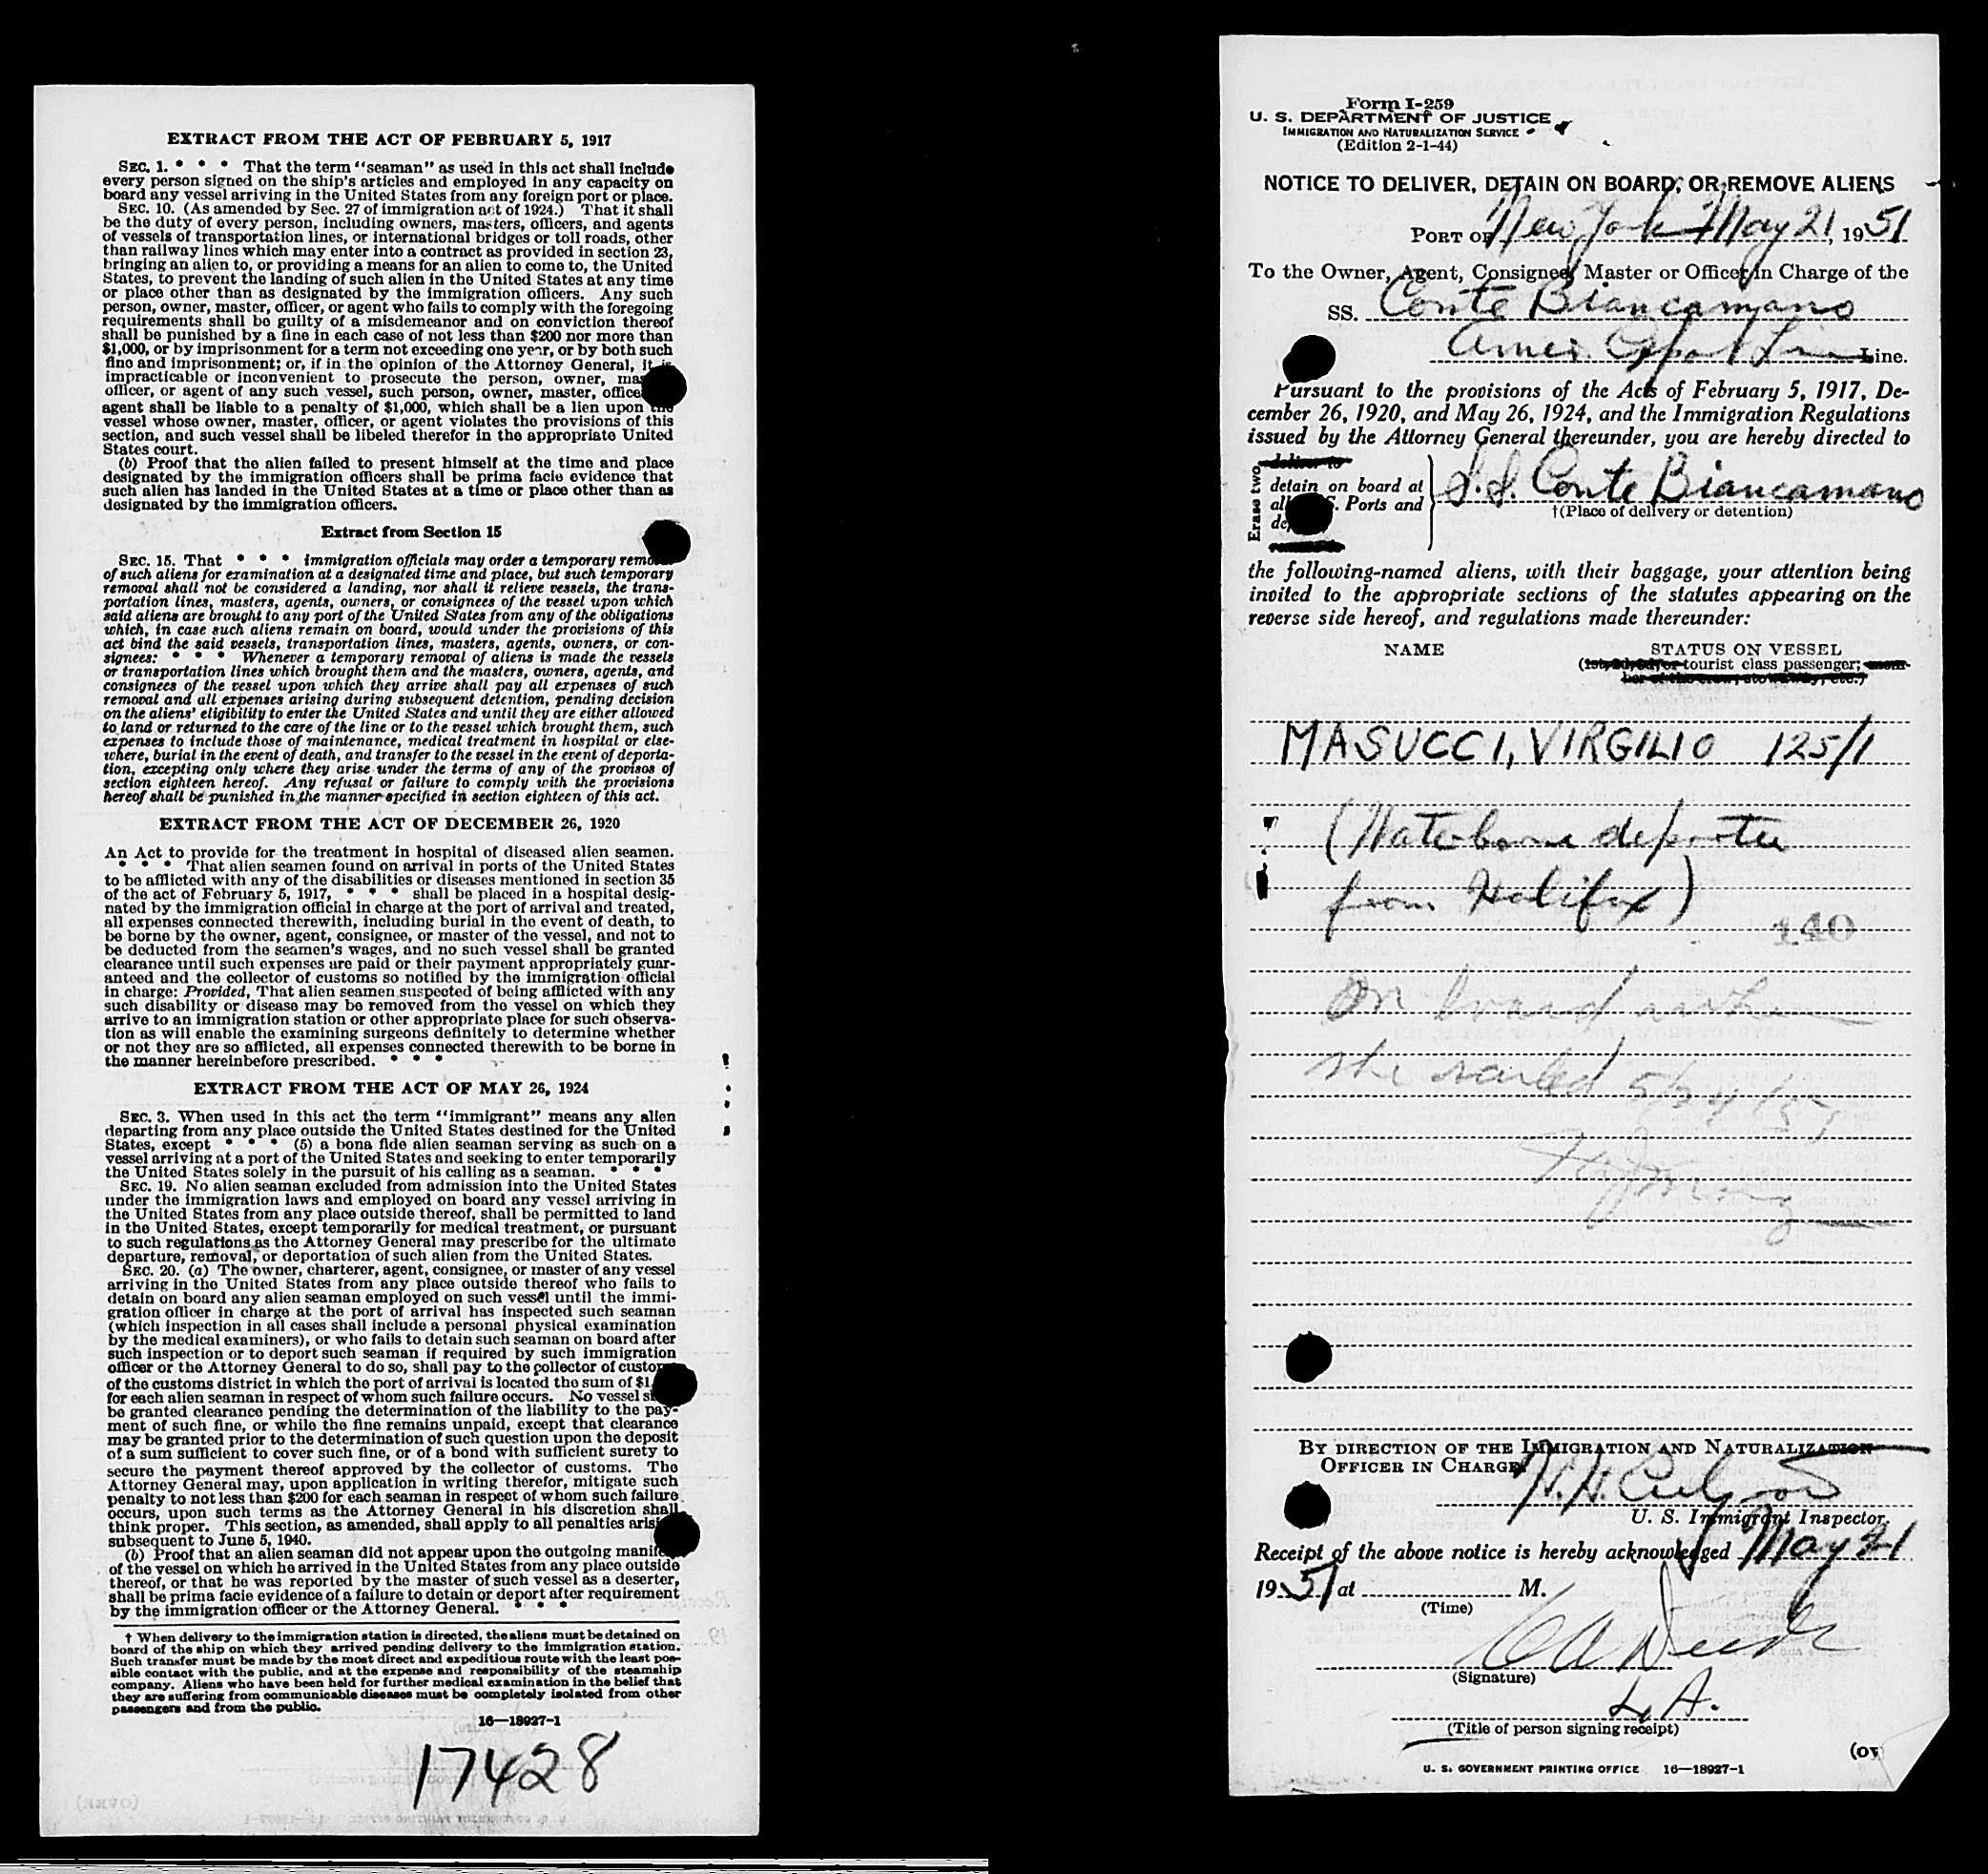 EXTRACT FROM THE ACT OF FEBRUARY 5, 1917
SEC. 1. * * * That the term "seaman" as used in this act shall include
every person signed on the ship's articles and employed in any capacity on
board any vessel arriving in the United States from any foreign port or place.
SEC. 10. (As amended by Sec. 27 of immigration act of 1924.) That it shall
be the duty of every person, including owners, masters, officers, and agents
of vessels of transportation lines, or international bridges or toll roads, other
than railway lines which may enter into a contract as provided in section 23,
bringing an alien to, or providing a means for an alien to come to, the United
States, to prevent the landing of such alien in the United States at any time
or place other than as designated by the immigration officers. Any such
person, owner, master, officer, or agent who fails to comply with the foregoing
requirements shall be guilty of a misdemeanor and on conviction thereof
shall be punished by a fine in each case of not less than $200 nor more than
$1,000, or by imprisonment for a term not exceeding one year, or by both such
fine and imprisonment; or, if in the opinion of the Attorney General, it is
impracticable or inconvenient to prosecute the person, owner, mas
officer, or agent of any such vessel, such person, owner, master, office
agent shall be liable to a penalty of $1,000, which shall be a lien upon the
vessel whose owner, master, officer, or agent violates the provisions of this
section, and such vessel shall be libeled therefor in the appropriate United
States court.
(b) Proof that the alien failed to present himself at the time and place
designated by the immigration officers shall be prima facie evidence that
such alien has landed in the United States at a time or place other than as
designated by the immigration officers.
Extract from Section 15
SEC. 15. That * * * immigration officials may order a temporary removal
of such aliens for examination at a designated time and place, but such temporary
removal shall not be considered a landing, nor shall it relieve vessels, the trans-
portation lines, masters, agents, owners, or consignees of the vessel upon which
said aliens are brought to any port of the United States from any of the obligations
which, in case such aliens remain on board, would under the provisions of this
act bind the said vessels, transportation lines, masters, agents, owners, or con-
signees: * * * Whenever a temporary removal of aliens is made the vessels
or transportation lines which brought them and the masters, owners, agents, and
consignees of the vessel upon which they arrive shall pay all expenses of such
removal and all expenses arising during subsequent detention, pending decision
on the aliens' eligibility to enter the United States and until they are either allowed
to land or returned to the care of the line or to the vessel which brought them, such
expenses to include those of maintenance, medical treatment in hospital or else-
where, burial in the event of death, and transfer to the vessel in the event of deporta-
tion, excepting only where they arise under the terms of any of the provisos of
section eighteen hereof. Any refusal or failure to comply with the provisions
hereof shall be punished in the manner specified in section eighteen of this act.
EXTRACT FROM THE ACT OF DECEMBER 26, 1920
An Act to provide for the treatment in hospital of diseased alien seamen.
* * * That alien seamen found on arrival in ports of the United States
to be afflicted with any of the disabilities or diseases mentioned in section 35
of the act of February 5, 1917, * * * shall be placed in a hospital desig-
nated by the immigration official in charge at the port of arrival and treated,
all expenses connected therewith, including burial in the event of death, to
be borne by the owner, agent, consignee, or master of the vessel, and not to
be deducted from the seamen's wages, and no such vessel shall be granted
clearance until such expenses are paid or their payment appropriately guar-
anteed and the collector of customs so notified by the immigration official
in charge: Provided, That alien seamen suspected of being afflicted with any
such disability or disease may be removed from the vessel on which they
arrive to an immigration station or other appropriate place for such observa-
tion as will enable the examining surgeons definitely to determine whether
or not they are so afflicted, all expenses connected therewith to be borne in
the manner hereinbefore prescribed. * * *
EXTRACT FROM THE ACT OF MAY 26, 1924
SEC. 3. When used in this act the term "immigrant" means any alien
departing from any place outside the United States destined for the United
States, except * * * (5) a bona fide alien seaman serving as such on a
vessel arriving at a port of the United States and seeking to enter temporarily
the United States solely in the pursuit of his calling as a seaman. * * *
SEC. 19. No alien seaman excluded from admission into the United States
under the immigration laws and employed on board any vessel arriving in
the United States from any place outside thereof, shall be permitted to land
in the United States, except temporarily for medical treatment, or pursuant
to such regulations as the Attorney General may prescribe for the ultimate
departure, removal, or deportation of such alien from the United States.
SEC. 20. (a) The owner, charterer, agent, consignee, or master of any vessel
arriving in the United States from any place outside thereof who fails to
detain on board any alien seaman employed on such vessel until the immi-
gration officer in charge at the port of arrival has inspected such seaman
(which inspection in all cases shall include a personal physical examination
by the medical examiners), or who fails to detain such seaman on board after
such inspection or to deport such seaman if required by such immigration
officer or the Attorney General to do so, shall pay to the collector of custom
of the customs district in which the port of arrival is located the sum of $1,
for each alien seaman in respect of whom such failure occurs. No vessel s
be granted clearance pending the determination of the liability to the pay-
ment of such fine, or while the fine remains unpaid, except that clearance
may be granted prior to the determination of such question upon the deposit
of a sum sufficient to cover such fine, or of a bond with sufficient surety to
secure the payment thereof approved by the collector of customs. The
Attorney General may, upon application in writing therefor, mitigate such
penalty to not less than $200 for each seaman in respect of whom such failure
occurs, upon such terms as the Attorney General in his discretion shall
think proper. This section, as amended, shall apply to all penalties arisi
subsequent to June 5, 1940.
(b) Proof that an alien seaman did not appear upon the outgoing manife
of the vessel on which he arrived in the United States from any place outside
thereof, or that he was reported by the master of such vessel as a deserter,
shall be prima facie evidence of a failure to detain or deport after requirement
by the immigration officer or the Attorney General. * * *
† When delivery to the immigration station is directed, the aliens must be detained on
board of the ship on which they arrived pending delivery to the immigration station.
Such transfer must be made by the most direct and expeditious route with the least pos-
sible contact with the public, and at the expense and responsibility of the steamship
company. Aliens who have been held for further medical examination in the belief that
they are suffering from communicable diseases must be completely isolated from other
passengers and from the public.
16—18927-1
17428
Form I-259
U. S. DEPARTMENT OF JUSTICE
IMMIGRATION AND NATURALIZATION SERVICE
(Edition 2-1-44)
NOTICE TO DELIVER, DETAIN ON BOARD, OR REMOVE ALIENS
PORT OF New York May 21, 1951
To the Owner, Agent, Consignee, Master or Officer in Charge of the
SS. Conte Biancamano
Amer. Export Line Line.
Pursuant to the provisions of the Acts of February 5, 1917, De-
cember 26, 1920, and May 26, 1924, and the Immigration Regulations
issued by the Attorney General thereunder, you are hereby directed to
Erase two
deliver to
detain on board at S.S. Conte Biancamano
all S. Ports and †(Place of delivery or detention)
de
the following-named aliens, with their baggage, your attention being
invited to the appropriate sections of the statutes appearing on the
reverse side hereof, and regulations made thereunder:
NAME STATUS ON VESSEL
(1st, 2d, 3d, or tourist class passenger; mem-
ber of the crew; stowaway, etc.)
MASUCCI, VIRGILIO 125/1
(Waterborne deportee
from Halifax)
140
On board when
she sailed 5/24/51
BY DIRECTION OF THE IMMIGRATION AND NATURALIZATION
OFFICER IN CHARGE
U. S. Immigrant Inspector.
Receipt of the above notice is hereby acknowledged May 21
1951 at M.
(Time)
(Signature)
(Title of person signing receipt)
(ov
U. S. GOVERNMENT PRINTING OFFICE 16—18927-1